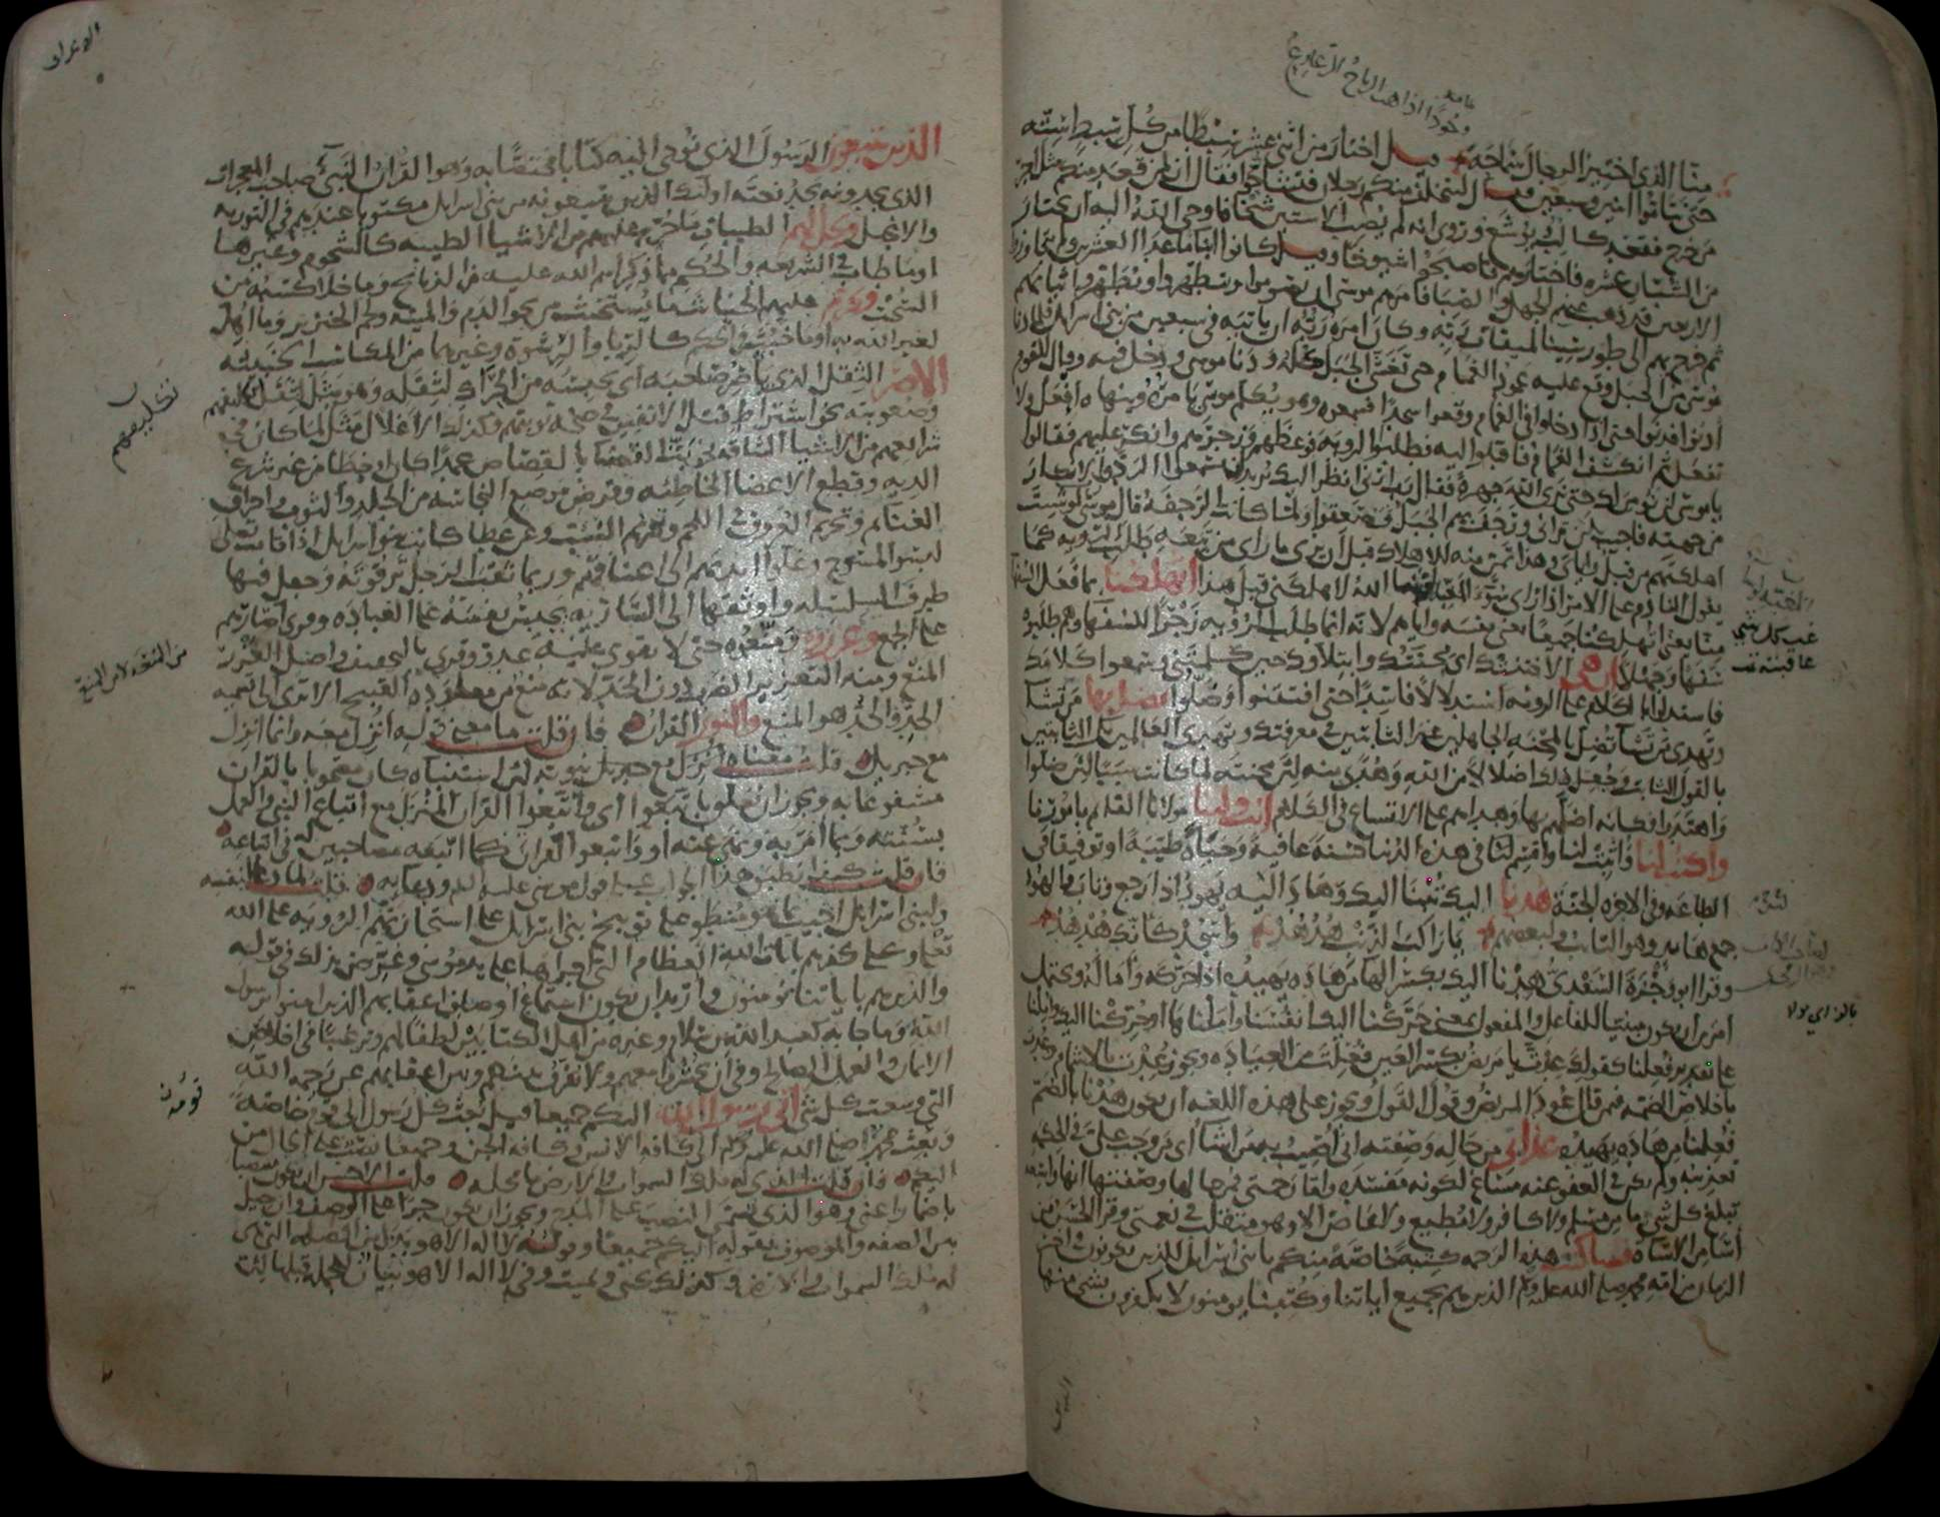 وجودا اذا هب الرياح الزعازع
منا الذي اختير الرجال سماحة وقيل اختار من اثني عشر سبطا من كل سبط ستة
حتى تتاموا اثنين وسبعين فقال ليتخلف منكم رجلان فتشاحوا فقال ان لمن قعد منكم مثل اجر
من خرج فقعد كالب ويوشع وروى انه لم يصب الا ستين شيخا فاوحى الله اليه ان يختار
من الشبان عشرة فاختارهم فاصبحوا شيوخا وقيل كانوا ابناء ما عدا العشرين ولم يتجاوزوا
الاربعين قد ذهب عنهم الجهل والصبا فامرهم موسى ان يصوموا ويتطهروا ويطهروا ثيابهم
ثم خرج بهم الى طور سينا لميقات ربه وكان امره ربه ان ياتيه في سبعين من بني اسرائل فلما دنا
موسى من الجبل وقع عليه عمود الغمام حتى تغشى الجبل كله ودنا موسى ودخل فيه وقال للقوم
ادنوا فدنوا حتى اذا دخلوا في الغمام وقعوا سجدا فسمعوه وهو يكلم موسى يامره وينهاه افعل ولا
تفعل ثم انكشف الغمام فاقبلوا اليه فطلبوا الروية فوعظهم وزجرهم وانكر عليهم فقالوا
يا موسى لن نومن لك حتى نرى الله جهرة فقال رب ارني انظر اليك يريد ان يسمعوا الرد والانكار
من جهته فاجيب بلن تراني ورجف بهم الجبل فصعقوا ولما كانت الرجفة قال موسى رب لو شئت
اهلكتهم من قبل واياي وهذا تمن منه للاهلاك قبل ان يرى ما راى من تبعة طلب الروية كما
يقول النادم على الامر اذا راى سوء المغبة لو شا الله لاهلكني قبل هذا اتهلكنا بما فعل السفها
منا يعني اتهلكنا جميعا يعني نفسه واياهم لانه انما طلب الروية زجرا للسفها وهم طلبوها
سفها وجهلا ان هي الا فتنتك اي محنتك وابتلاوك حين كلمتني وسمعوا كلامك
فاستدلوا بالكلام على الروية استدلالا فاسدا حتى افتتنوا وضلوا تضل بها من تشا
وتهدي من تشا تضل بالمحنة الجاهلين غير الثابتين في معرفتك وتهدي العالمين بك الثابتين
بالقول الثابت وجعل ذلك اضلالا من الله وهدى منه لان محنته لما كانت سببا لان ضلوا
واهتدوا فكانه اضلهم بها وهداهم على الاتساع في الكلام انت ولينا مولانا القائم بامورنا
واكتب لنا واثبت لنا واقسم لنا في هذه الدنيا حسنة عافية وحياة طيبة او توفيقا في
الطاعة وفي الاخرة الجنة هدنا اليك تبنا اليك وهاد اليه يهود اذا رجع وتاب والهود
جمع هايد وهو التائب ولبعضهم يا راكب الذنب هدهد واسجد كانك هدهد
وقرا ابو وجزة السعدي هدنا اليك بكسر الها من هاده يهيده اذا حركه واماله ويحتمل
امرين ان يكون مبنيا للفاعل والمفعول بمعنى حركنا اليك انفسنا واملناها او حركنا اليك واملنا
على تقدير فعلنا كقولك عدت يا مريض بكسر العين فعلت من العيادة ويجوز عدت بالاشمام وعدت
باخلاص الضمة فيمن قال عود المريض وقول القول ويجوز على هذه اللغة ان يكون هدنا بالضم
فعلنا من هاده يهيده عذابي من حاله وصفته اني اصيب به من اشا اي من وجب علي في الحكمة
تعذيبه ولم يكن في العفو عنه مساغ لكونه مفسدة واما رحمتي فمن حالها وصفتها انها واسعة
تبلغ كل شي ما من مسلم ولا كافر ولا مطيع ولا عاص الا وهو متقلب في نعمتي وقرا الحسن من
اسا من الاساة فساكتب هذه الرحمة كتبة خاصة منكم يا بني اسرائل للذين يكونون في اخر
الزمان من امة محمد صلى الله عليه وسلم الذين هم بجميع اياتنا وكتبنا يومنون لا يكفرون بشي منها
غب كل شي
عاقبته
الذين
الاعراف
الذين يتبعون الرسول الذي نوحي اليه كتابا مختصا به وهو القران النبي صاحب المعجزات
الذي يجدونه يجد نعته اولئك الذين يتبعونه من بني اسرائل مكتوبا عندهم في التوريه
والانجيل ويحل لهم الطيبات ما حرم عليهم من الاشيا الطيبة كالشحوم وغيرها
او ما طاب في الشريعة والحكم مما ذكر اسم الله عليه من الذبائح وما خلا كسبه من
السحت ويحرم عليهم الخبائث ما يستخبث من نحو الدم والميتة ولحم الخنزير وما اهل
لغير الله به او ما خبث في الحكم كالربا والرشوة وغيرهما من المكاسب الخبيثة
الاصر الثقل الذي ياصر صاحبه اي يحبسه من الحراك لثقله وهو مثل لثقل تكليفهم
وصعوبته نحو اشتراط قتل الانفس في صحة توبتهم وكذلك الاغلال مثل لما كان في
شرائعهم من الاشيا الشاقة نحو بت القضا بالقصاص عمدا كان او خطا من غير شرع
الدية وقطع الاعضا الخاطئة وقرض موضع النجاسة من الجلد والثوب واحراق
الغنائم وتحريم العروق في اللحم وتحريم السبت وعن عطا كانت بنو اسرائل اذا قامت تصلي
لبسوا المسوح وغلوا ايديهم الى اعناقهم وربما ثقب الرجل ترقوته وجعل فيها
طرف السلسلة واوثقها الى السارية يحبس نفسه على العبادة وقرى اصارهم
على الجمع وعزروه ومنعوه حتى لا يقوى عليه عدو وقرى بالتخفيف واصل العزر
المنع ومنه التعزير للضرب دون الحد لانه منع عن معاودة القبيح الا ترى الى تسميته
الحد والحد هو المنع والنور القران فان قلت ما معنى قوله انزل معه وانما انزل
مع جبريل قلت معناه انزل مع نبوته لان استنباه كان مصحوبا بالقران
مشفوعا به ويجوز ان يعلق باتبعوا اي واتبعوا القران المنزل مع اتباع النبي والعمل
بسنته وبما امر به ونهى عنه او واتبعوا القران كما اتبعه مصاحبين له في اتباعه
فان قلت كيف انطبق هذا الجواب على قول موسى عليه السلم ودعايه قلت لما دعا لنفسه
ولبني اسرائل اجيب بما هو منطو على توبيخ بني اسرائل على استجازتهم الروية على الله
تعالى وعلى كفرهم بايات الله العظام التي اجراها على يد موسى وعرض بذلك في قوله
والذين هم باياتنا يومنون واريد ان يكون استماع اوصاف اعقابهم الذين امنوا برسول
الله وما جا به كعبد الله بن سلام وغيره من اهل الكتابين لطفا لهم وترغيبا في اخلاص
الايمان والعمل الصالح وفي ان يحشروا معهم ولا يفرق بينهم وبين اعقابهم عن رحمة الله
التي وسعت كل شي اني رسول الله اليكم جميعا قيل بعث كل رسول الى قومه خاصة
وبعث محمد صلى الله عليه وسلم الى كافة الانس وكافة الجن وجميعا نصب على الحال من
اليكم فان قلت الذي له ملك السموات والارض ما محله قلت الاحسن ان يكون منصوبا
باضمار اعني وهو الذي يسمى النصب على المدح ويجوز ان يكون جرا على الوصف وان حيل
بين الصفة والموصوف بقوله اليكم جميعا وقوله لا اله الا هو بدل من الصلة التي هي
له ملك السموات والارض وكذلك يحيي ويميت وفي لا اله الا هو بيان للجملة قبلها لان
تكليفهم